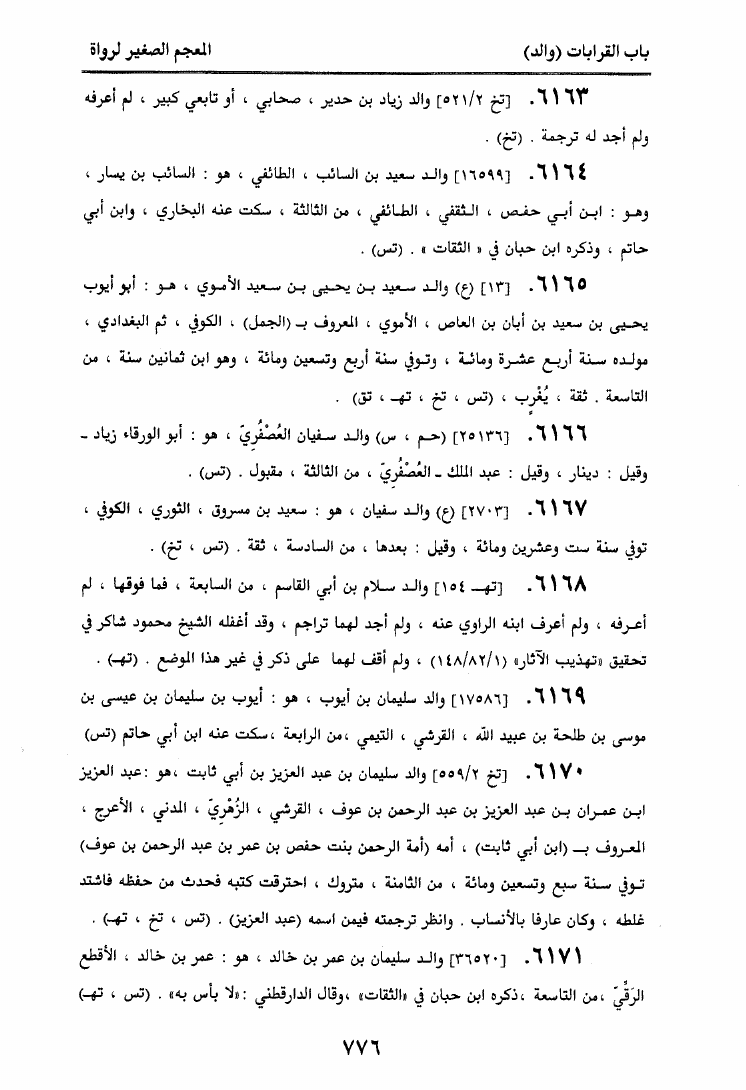 باب القرابات (والد) المعجم الصغير لرواة
٦١٦٣. [تخ ٥٢١/٢] والد زياد بن حدير ، صحابي ، أو تابعي كبير ، لم أعرفه
ولم أجد له ترجمة . (تخ) .
٦١٦٤. [١٦٥٩٩] والد سعيد بن السائب ، الطائفي ، هو : السائب بن يسار ،
وهو : ابن أبي حفص ، الثقفي ، الطائفي ، من الثالثة ، سكت عنه البخاري ، وابن أبي
حاتم ، وذكره ابن حبان في « الثقات » . (تس) .
٦١٦٥. [١٣] (ع) والد سعيد بن يحيى بن سعيد الأموي ، هو : أبو أيوب
يحيى بن سعيد بن أبان بن العاص ، الأموي ، المعروف بـ (الجمل) ، الكوفي ، ثم البغدادي ،
مولده سنة أربع عشرة ومائة ، وتوفي سنة أربع وتسعين ومائة ، وهو ابن ثمانين سنة ، من
التاسعة . ثقة ، يُغْرِب ، (تس ، تخ ، تهـ ، تق) .
٦١٦٦. [٢٥١٣٦] (حم ، س) والد سفيان العُصْفُرِيّ ، هو : أبو الورقاء زياد ـ
وقيل : دينار ، وقيل : عبد الملك ـ العُصْفُرِيّ ، من الثالثة ، مقبول . (تس) .
٦١٦٧. [٢٧٠٣] (ع) والد سفيان ، هو : سعيد بن مسروق ، الثوري ، الكوفي ،
توفي سنة ست وعشرين ومائة ، وقيل : بعدها ، من السادسة ، ثقة . (تس ، تخ) .
٦١٦٨. [تهـ ١٥٤] والد سلام بن أبي القاسم ، من السابعة ، فما فوقها ، لم
أعرفه ، ولم أعرف ابنه الراوي عنه ، ولم أجد لهما تراجم ، وقد أغفله الشيخ محمود شاكر في
تحقيق «تهذيب الآثار» (١٤٨/٨٢/١) ، ولم أقف لهما على ذكر في غير هذا الموضع . (تهـ) .
٦١٦٩. [١٧٥٨٦] والد سليمان بن أيوب ، هو : أيوب بن سليمان بن عيسى بن
موسى بن طلحة بن عبيد الله ، القرشي ، التيمي ،من الرابعة ،سكت عنه ابن أبي حاتم (تس)
٦١٧٠. [تخ ٥٥٩/٢] والد سليمان بن عبد العزيز بن أبي ثابت ،هو :عبد العزيز
ابن عمران بن عبد العزيز بن عبد الرحمن بن عوف ، القرشي ، الزُّهْرِيّ ، المدني ، الأعرج ،
المعروف بـ (ابن أبي ثابت) ، أمه (أمة الرحمن بنت حفص بن عمر بن عبد الرحمن بن عوف)
توفي سنة سبع وتسعين ومائة ، من الثامنة ، متروك ، احترقت كتبه فحدث من حفظه فاشتد
غلطه ، وكان عارفا بالأنساب . وانظر ترجمته فيمن اسمه (عبد العزيز) . (تس ، تخ ، تهـ) .
٦١٧١. [٣٦٥٢٠] والد سليمان بن عمر بن خالد ، هو : عمر بن خالد ، الأقطع
الرَقِّيّ ،من التاسعة ،ذكره ابن حبان في «الثقات» ،وقال الدارقطني :«لا بأس به» . (تس ، تهـ)
٧٧٦